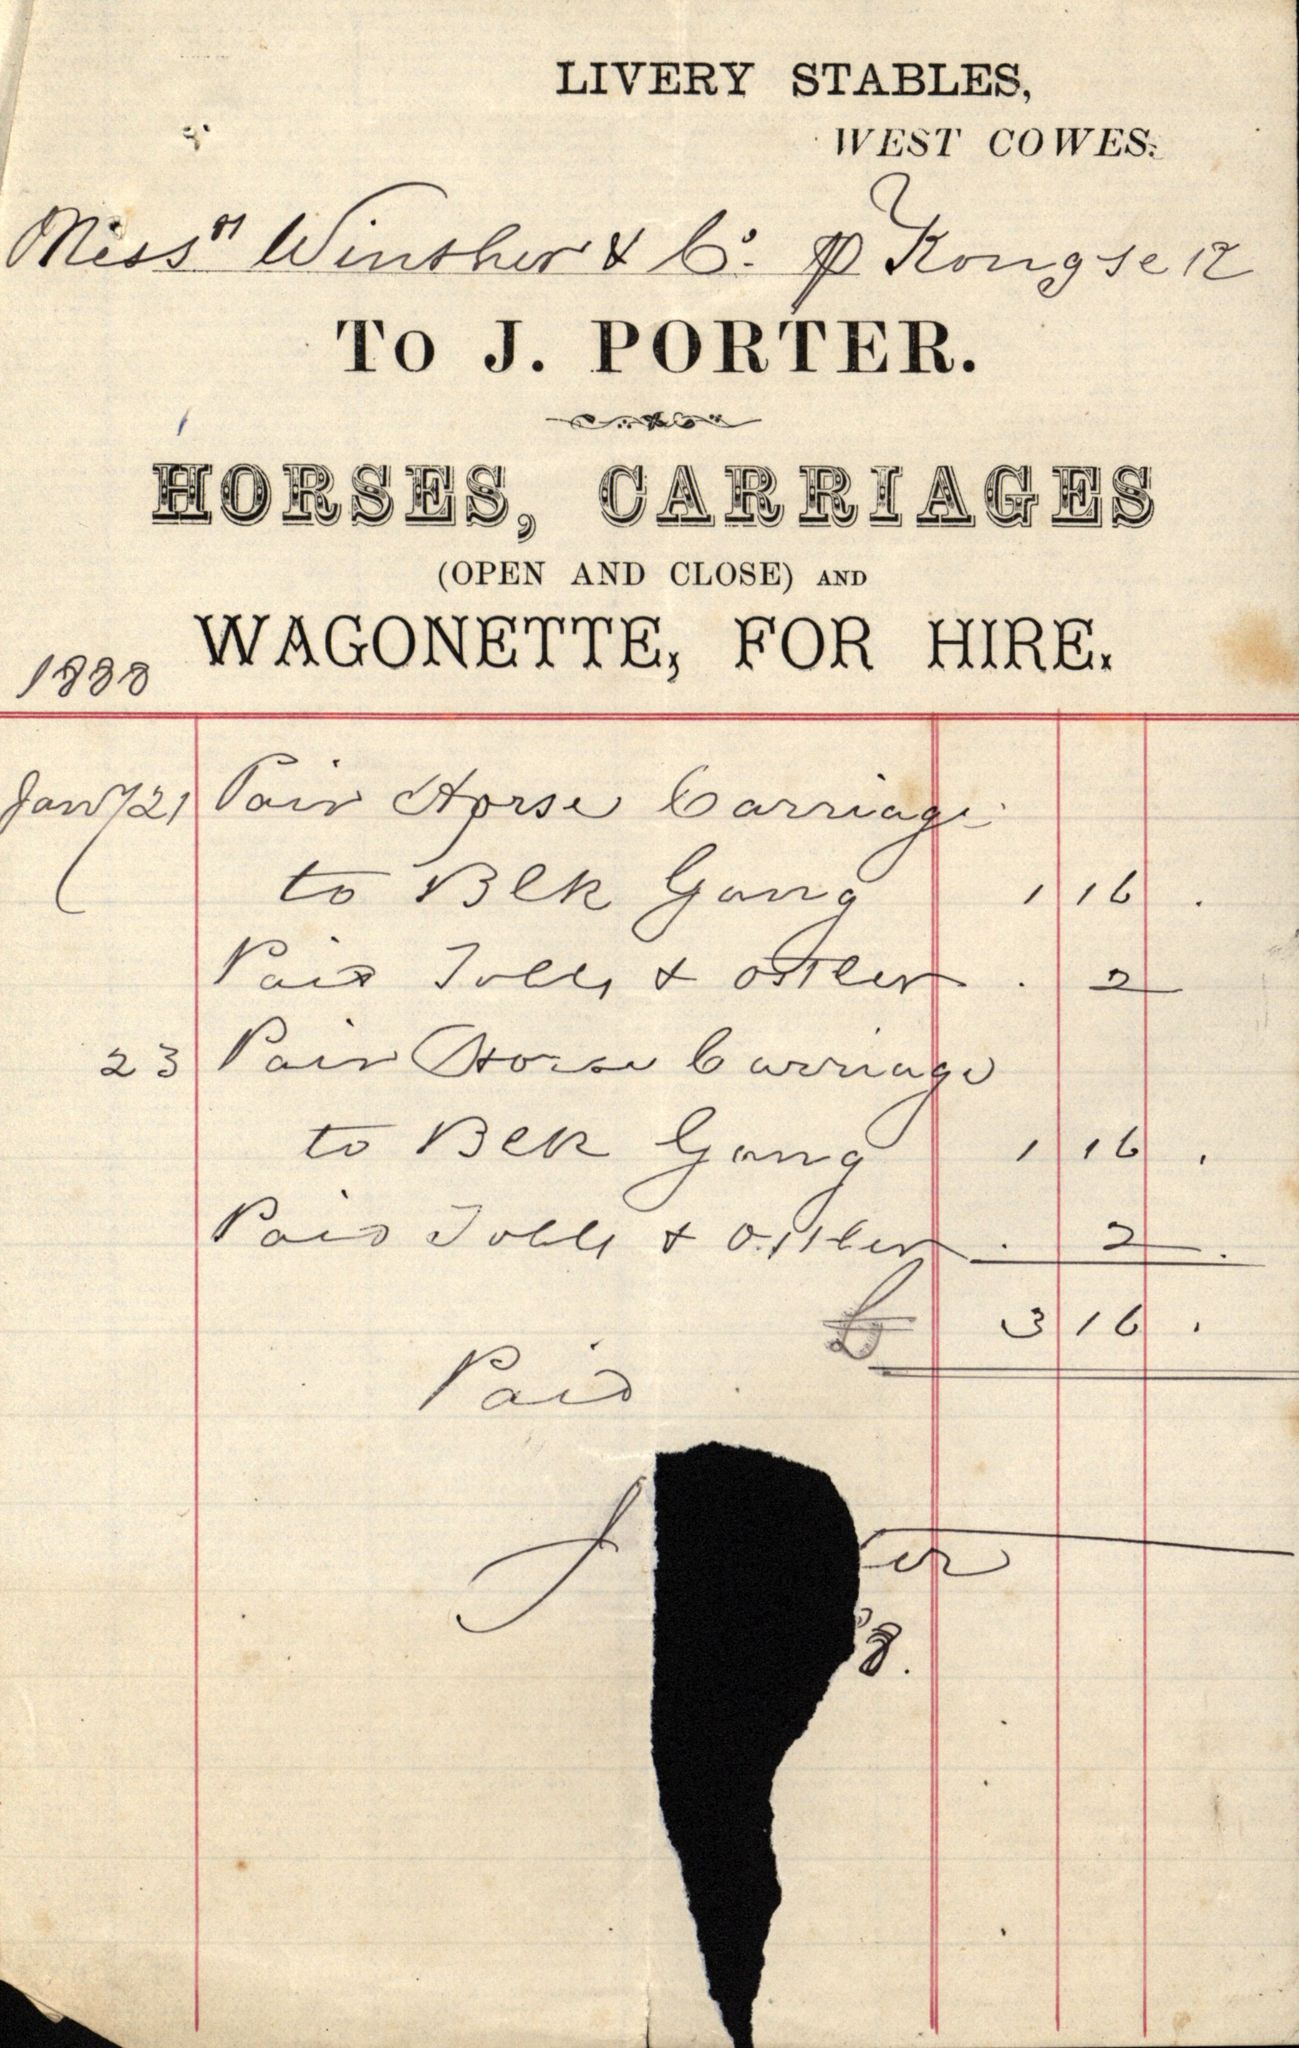 LIVERY STABLES,
WEST COWES.
Messrs Winther & Co. p Kongsek
To J. PORTER.
HORSES, CARRIAGES
(OPEN AND CLOSE) AND
WAGONETTE, FOR HIRE.
1888
Jany 21 Pair Horse Carriage
to Blk Gang 1 16 .
Paid Tolls & Ostler . 2
23 Pair Horse Carriage
to Blk Gang 1 16 .
Paid Tolls & Ostler . 2 .
£ 3 16 .
Paid
J er
8.